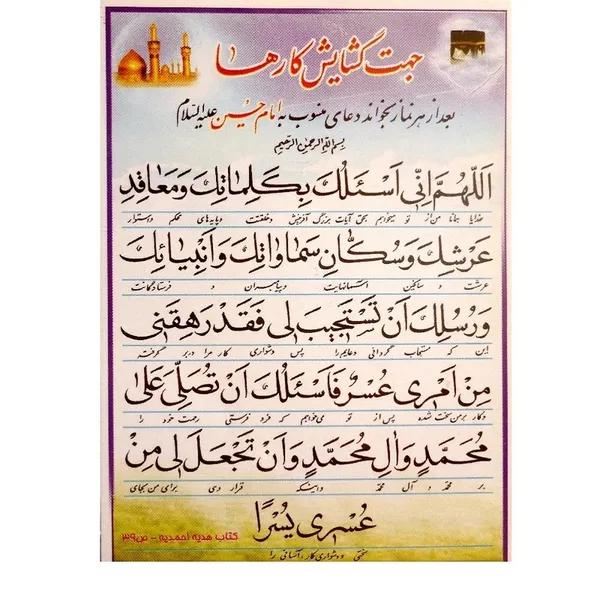 جهت گشایش کارها
بعد از هر نماز بخواند دعای منسوب به امام حسین علیه السلام
بسم الله الرحمن الرحیم
اَللّٰهُمَّ اِنّی اَسْئَلُكَ بِكَلِماتِكَ وَمَعاقِدِ
خدایا همانا من از تو میخواهم بحق آیات بزرگ آفرینش و خلقتت و پایه‌های محکم و استوار
عَرْشِكَ وَسُكّٰانِ سَمٰاوٰاتِكَ وَاَنْبِیٰائِكَ
عرشت و ساکنین آسمانهایت و پیامبران و فرستادگانت
وَرُسُلِكَ اَنْ تَسْتَجیبَ لی فَقَدْ رَهِقَنی
این که مستجاب گردانی دعایم را پس دشواری کار مرا در بر گرفته
مِنْ اَمْری عُسْرٌ فَاَسْئَلُكَ اَنْ تُصَلِّیَ عَلیٰ
و کار بر من سخت شده پس از تو می‌خواهم که فرو فرستی رحمت خود را
مُحَمَّدٍ وَالِ مُحَمَّدٍ وَاَنْ تَجْعَلَ لی مِنْ
بر محمد و آل محمد و اینکه قرار دهی برای من بجای
عُسْری یُسْرًا
سختی و دشواری کار، آسانی را
کتاب هدیه احمدیه - ص۳۹